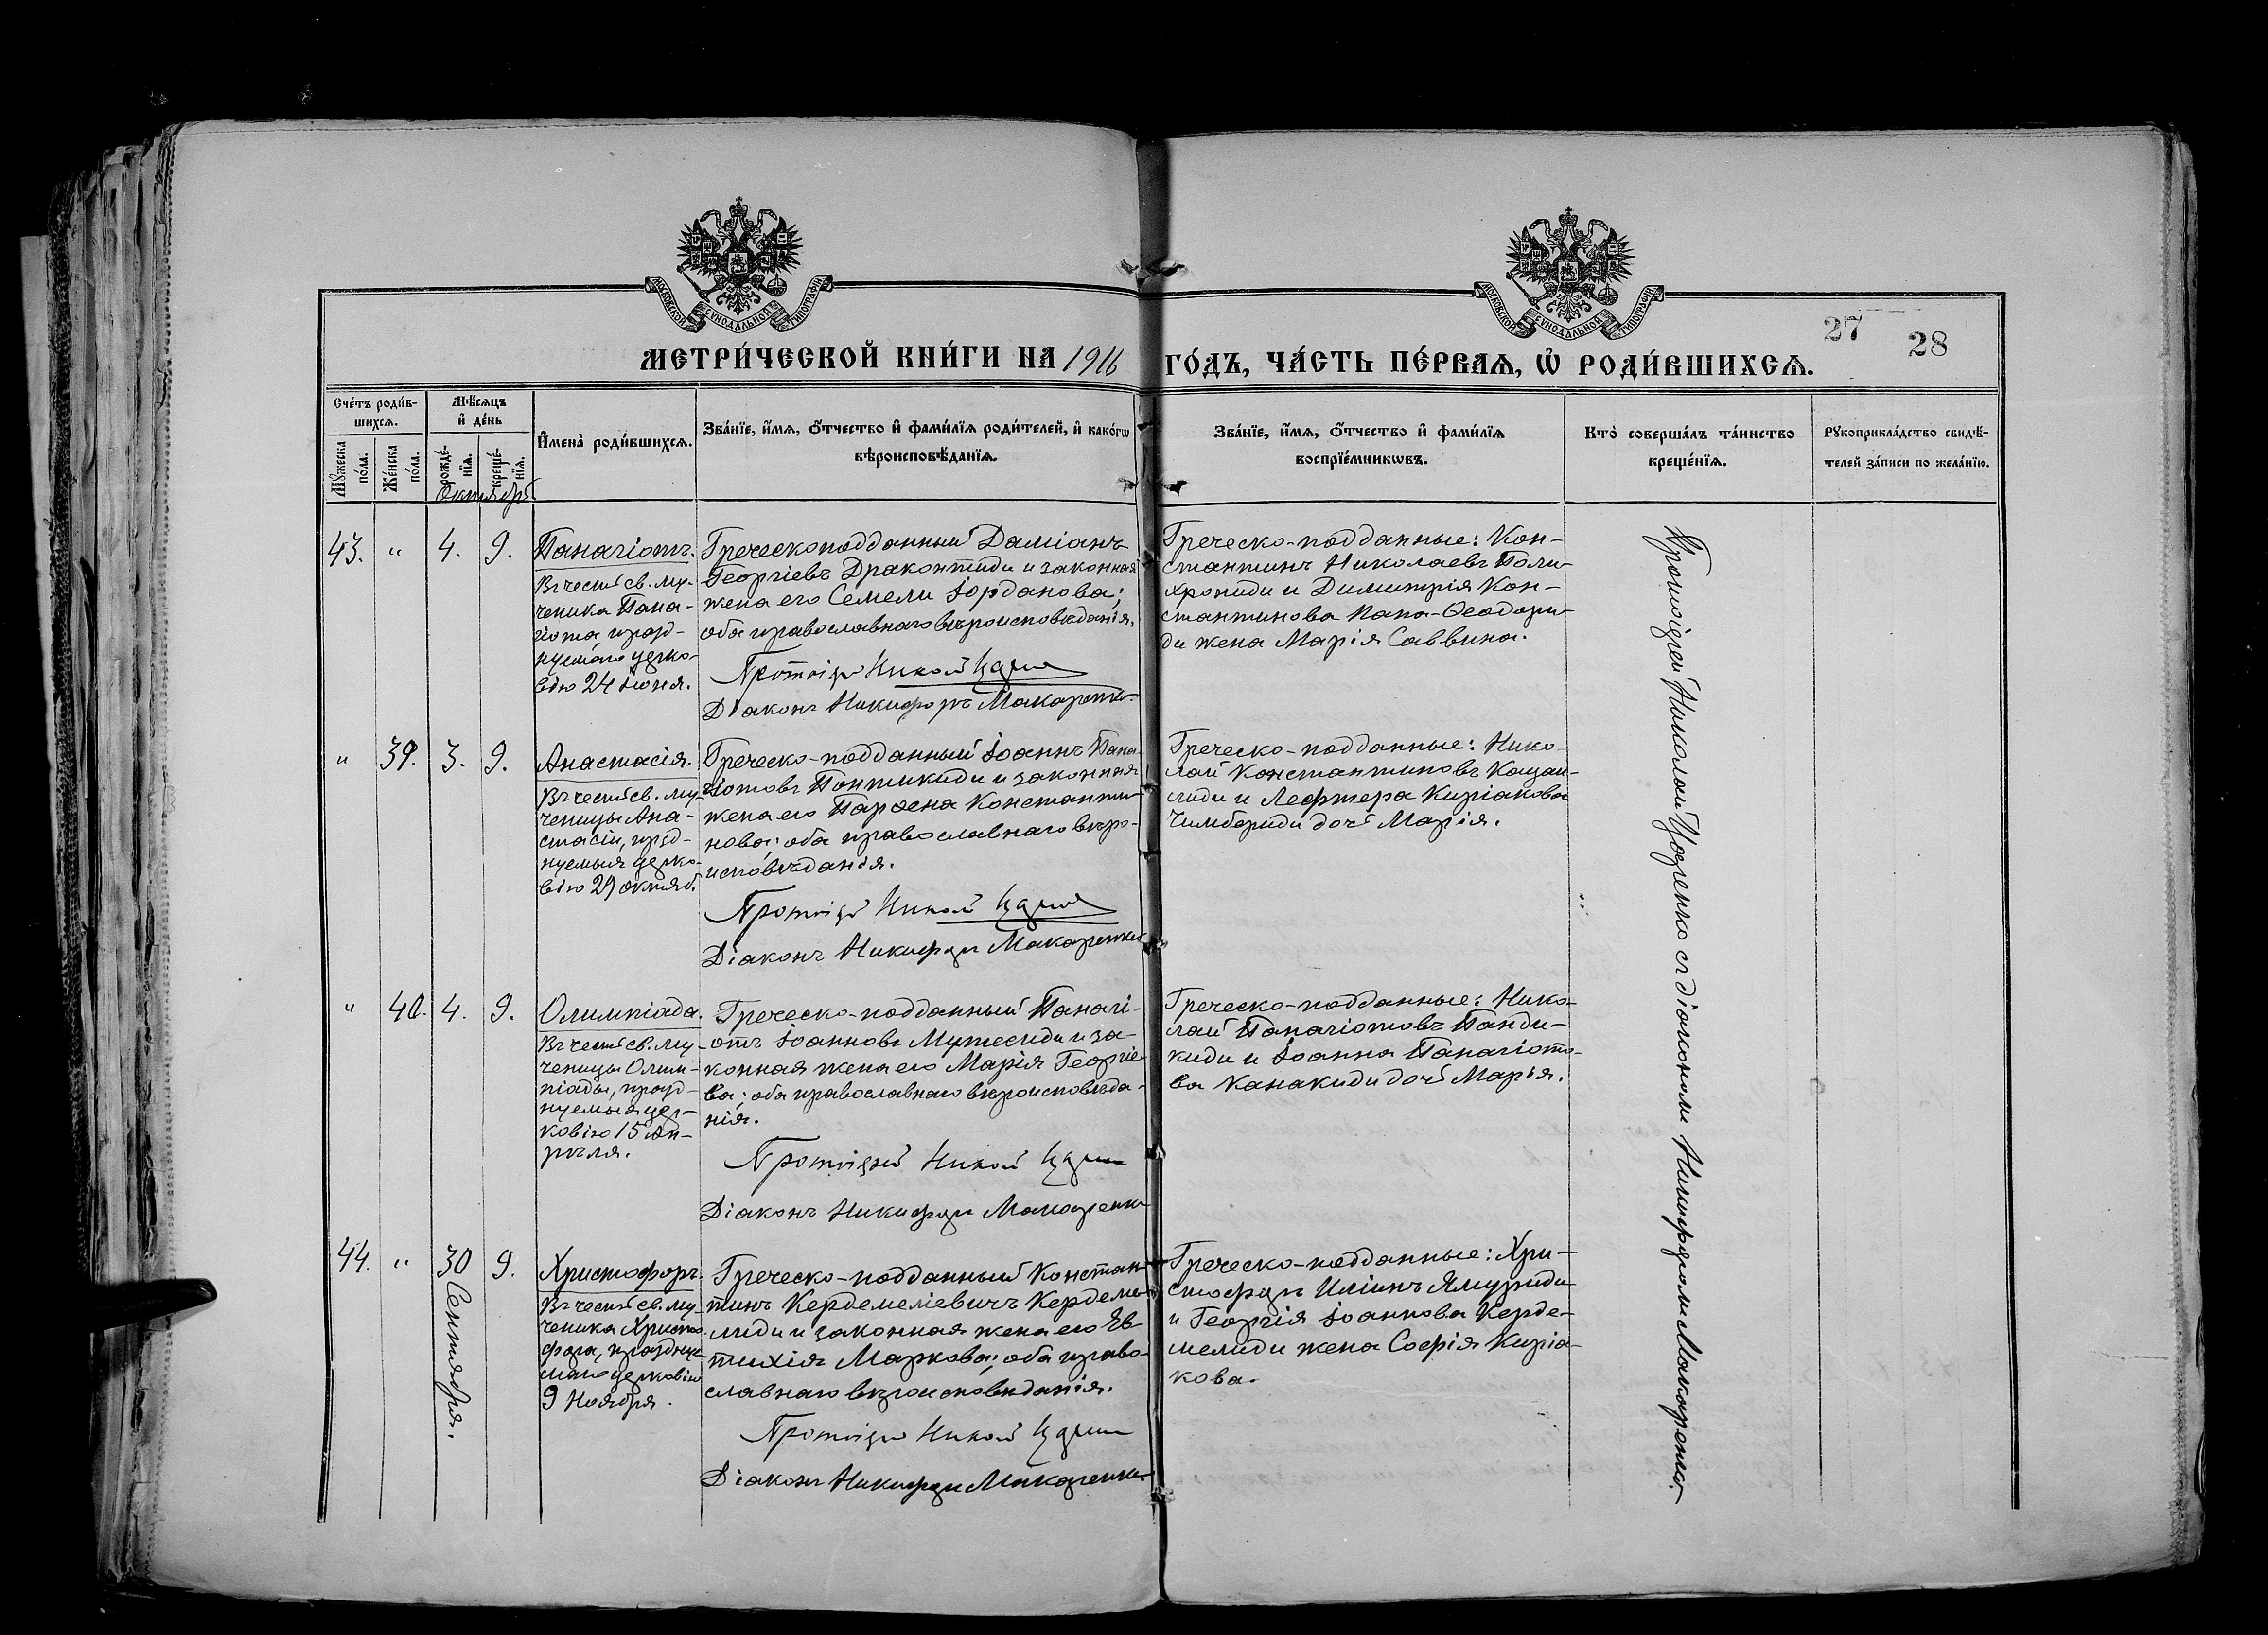 МОСКОВСКОЙ СѴНОДАЛЬНОЙ ТИПОГРАФІИ
МОСКОВСКОЙ СѴНОДАЛЬНОЙ ТИПОГРАФІИ
27 28
МЕТРИ́ЧЕСКОЙ КНИ́ГИ НА 1916 ГО́ДЪ, ЧА́СТЬ ПЕ́РВАѦ, Ѿ РОДИ́ВШИХСѦ.
Сче́тъ роди́в-
шихсѧ.
Мꙋжеска
по́ла.
Же́нска
по́ла.
Мѣ́сѧцъ
и҆ де́нь
рожде́-
нїѧ.
креще́-
нїѧ.
И҆мена̀ роди́вшихсѧ.
Зва́нїе, и҆́мѧ, ѻ҆́тчество и҆ фами́лїѧ роди́телей, и҆ како́гѡ
вѣроисповѣ́данїѧ.
Зва́нїе, и҆́мѧ, ѻ҆́тчество и҆ фами́лїѧ
воспрїе́мникѡвъ.
Кто̀ соверша́лъ та́инство
креще́нїѧ.
Рꙋкоприкла́дство свидѣ́-
телей за́писи по жела́нїю.
Октября
43. " 4. 9.
Панагіотъ.
Въ честь св. му-
ченика Пана-
гіота празд-
нуемаго церко-
вію 24 Іюня.
Греческоподданный Даміанъ
Георгіевъ Драконтиди и законная
жена его Семели Іорданова;
оба православнаго вѣроисповѣданія.
Протоіерей Николай
Діаконъ Никифоръ Макаренко
Греческо-подданные: Кон-
стантинъ Николаевъ Поли-
хрониди и Димитрія Кон-
стантинова Папа-Ѳеодори-
ди жена Марія Саввина.
" 39. 3. 9.
Анастасія.
Въ честь св. му-
ченицы Ана-
стасіи, празд-
нуемыя церко-
вію 29 октяб.
Греческо-подданный Іоаннъ Пана-
гіотовъ Понтикиди и законная
жена его Парѳена Константи-
нова; оба православнаго вѣро-
исповѣданія.
Протоіерей Николай
Діаконъ Никифоръ Макаренко
Греческо-подданные: Нико-
лай Константиновъ
и Лефтера Киріакова
Чимбериди дочь Марія.
" 40. 4. 9.
Олимпіада.
Въ честь св. му-
ченицы Олим-
піады, празд-
нуемыя цер-
ковію 15 Ап-
рѣля.
Греческо-подданный Панагі-
отъ Іоанновъ Мутесиди и за-
конная жена его Марія Георгіе-
ва; оба православнаго вѣроисповѣда-
нія.
Протоіерей Николай
Діаконъ Никифоръ Макаренко
Греческо-подданные: Нико-
лай Панагіотовъ Панди-
киди и Іоанна Панагіото-
ва Канакиди дочь Марія.
44. " 30 9.
Сентября.
Христофоръ.
Въ честь св. му-
ченика Христо-
фора, празднуе-
маго церковію
9 Ноября.
Греческо-подданный Констан-
тинъ Кердемеліевичъ Кердеме-
лиди и законная жена его Ев-
тихія Маркова; оба право-
славнаго вѣроисповѣданія.
Протоіерей Николай
Діаконъ Никифоръ Макаренко
Греческо-подданные: Хри-
стофоръ Иліинъ Ямуриди
и Георгія Іоаннова Керде-
мелиди жена Софія Киріа-
кова.
Протоіерей Николай Цоренко съ діакономъ Никифоромъ Макаренко.